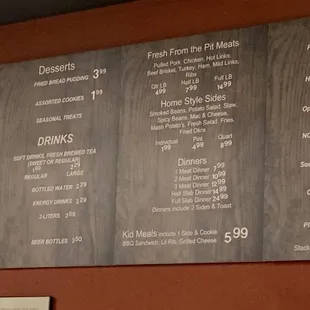 Desserts
FRIED BREAD PUDDING 3.99
ASSORTED COOKIES 1.99
SEASONAL TREATS
DRINKS
SOFT DRINKS, FRESH BREWED TEA
(SWEET OR REGULAR)
1.99 2.29
REGULAR LARGE
BOTTLED WATER
ENERGY DRINKS
2-LITERS
BEER BOTTLES
Fresh From the Pit Meats
Pulled Pork, Chicken, Hot Links
Beef Brisket, Turkey, Ham, Mild Links
Ribs
Qtr LB Half LB Full LB
4.99 7.99 14.99
Home Style Sides
Smoked Beans, Potato Salad, Slaw,
Spicy Beans, Mac & Cheese,
Mash Potato's, Fresh Salad, Fries,
Fried Okra
Individual Pint Quart
Dinners
1 Meat Dinner 7.99
2 Meat Dinner 10.99
3 Meat Dinner 12.99
Half Slab Dinner 14.99
Full Slab Dinner 24.99
Dinners include 2 Sides & Toast
Kid Meals include 1 Side & Cookie
BBQ Sandwich, Lil Rib, Grilled Cheese 5.99